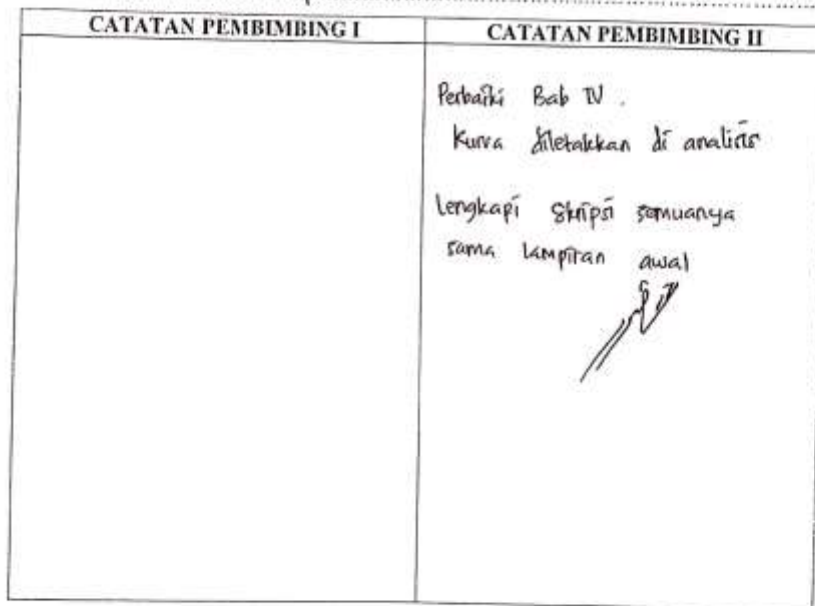 CATATAN PEMBIMBING I
CATATAN PEMBIMBING II
Perbaiki Bab IV.
Kurva diletakkan di analisis
Lengkapi Skripsi semuanya
sama lampiran awal